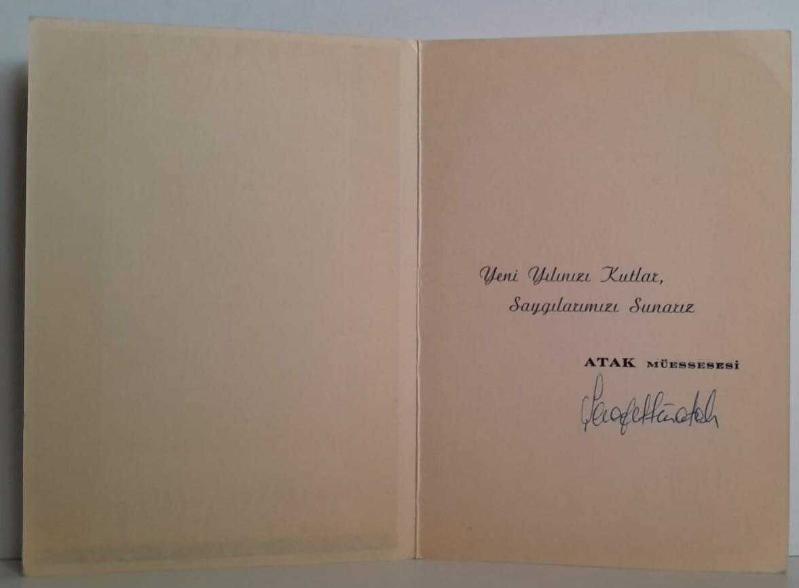 Yeni Yılınızı Kutlar,
Saygılarımızı Sunarız
ATAK MÜESSESESİ